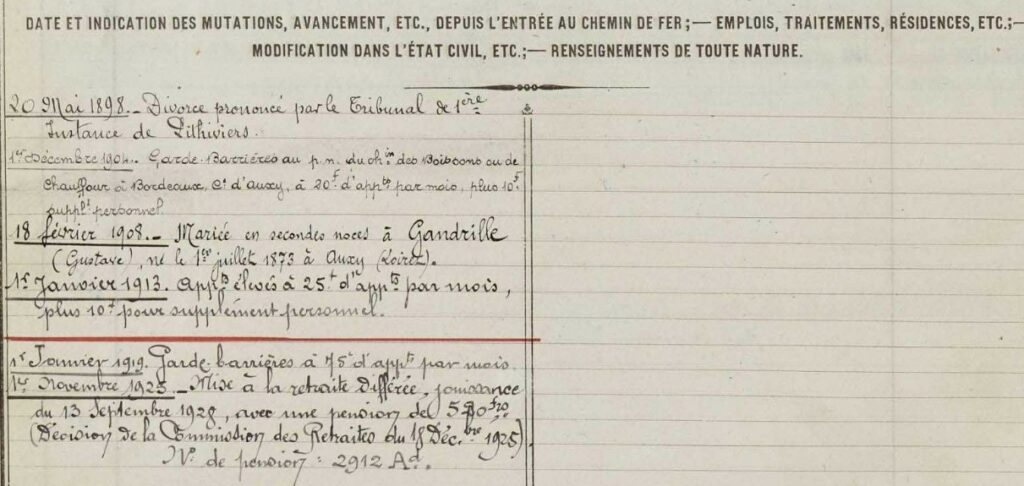 DATE ET INDICATION DES MUTATIONS, AVANCEMENT, ETC., DEPUIS L'ENTRÉE AU CHEMIN DE FER; — EMPLOIS, TRAITEMENTS, RÉSIDENCES, ETC.; —
MODIFICATION DANS L'ÉTAT CIVIL, ETC.; — RENSEIGNEMENTS DE TOUTE NATURE.
20 Mai 1898. - Divorce prononcé par le Tribunal de 1ère
Instance de Pithiviers.
1er Décembre 1904. Garde-Barrières au p.n. du chin des Boissons ou de
Chauffour à Bordeaux, Ct d'Auxy, à 20f d'appts par mois, plus 10f
supplt personnel.
18 février 1908. - Mariée en secondes noces à Gandrille
(Gustave), né le 1er juillet 1873 à Auxy (Loiret).
1r Janvier 1913. Appts élevés à 25f d'appts par mois,
plus 10f pour supplément personnel.
1r Janvier 1919. Garde-barrières à 75f d'appts par mois.
1er Novembre 1925. - Mise à la retraite différée, jouissance
du 13 Septembre 1928, avec une pension de
(Décision de la Commission des Retraites du 18 Déc.bre 1925)
No de pension : 2912 Ad.